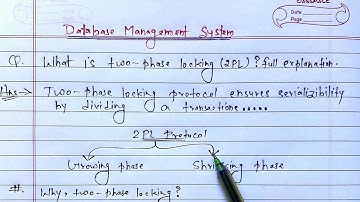 CLASSMATE
Date
Page
Database Management System
Q. What is two-phase locking (2PL)? full explanation.
Ans→ Two-phase locking protocol ensures serializibility
by dividing a transactions.....
2PL Protocol
Growing phase Shrinking phase
#. Why, two-phase locking?